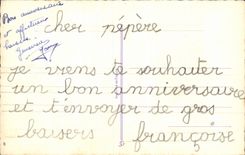 Bon anniversaire
et affectueux
baisers
cher pépère
je viens te souhaiter
un bon anniversaire
et t'envoyer de gros
baisers françoise